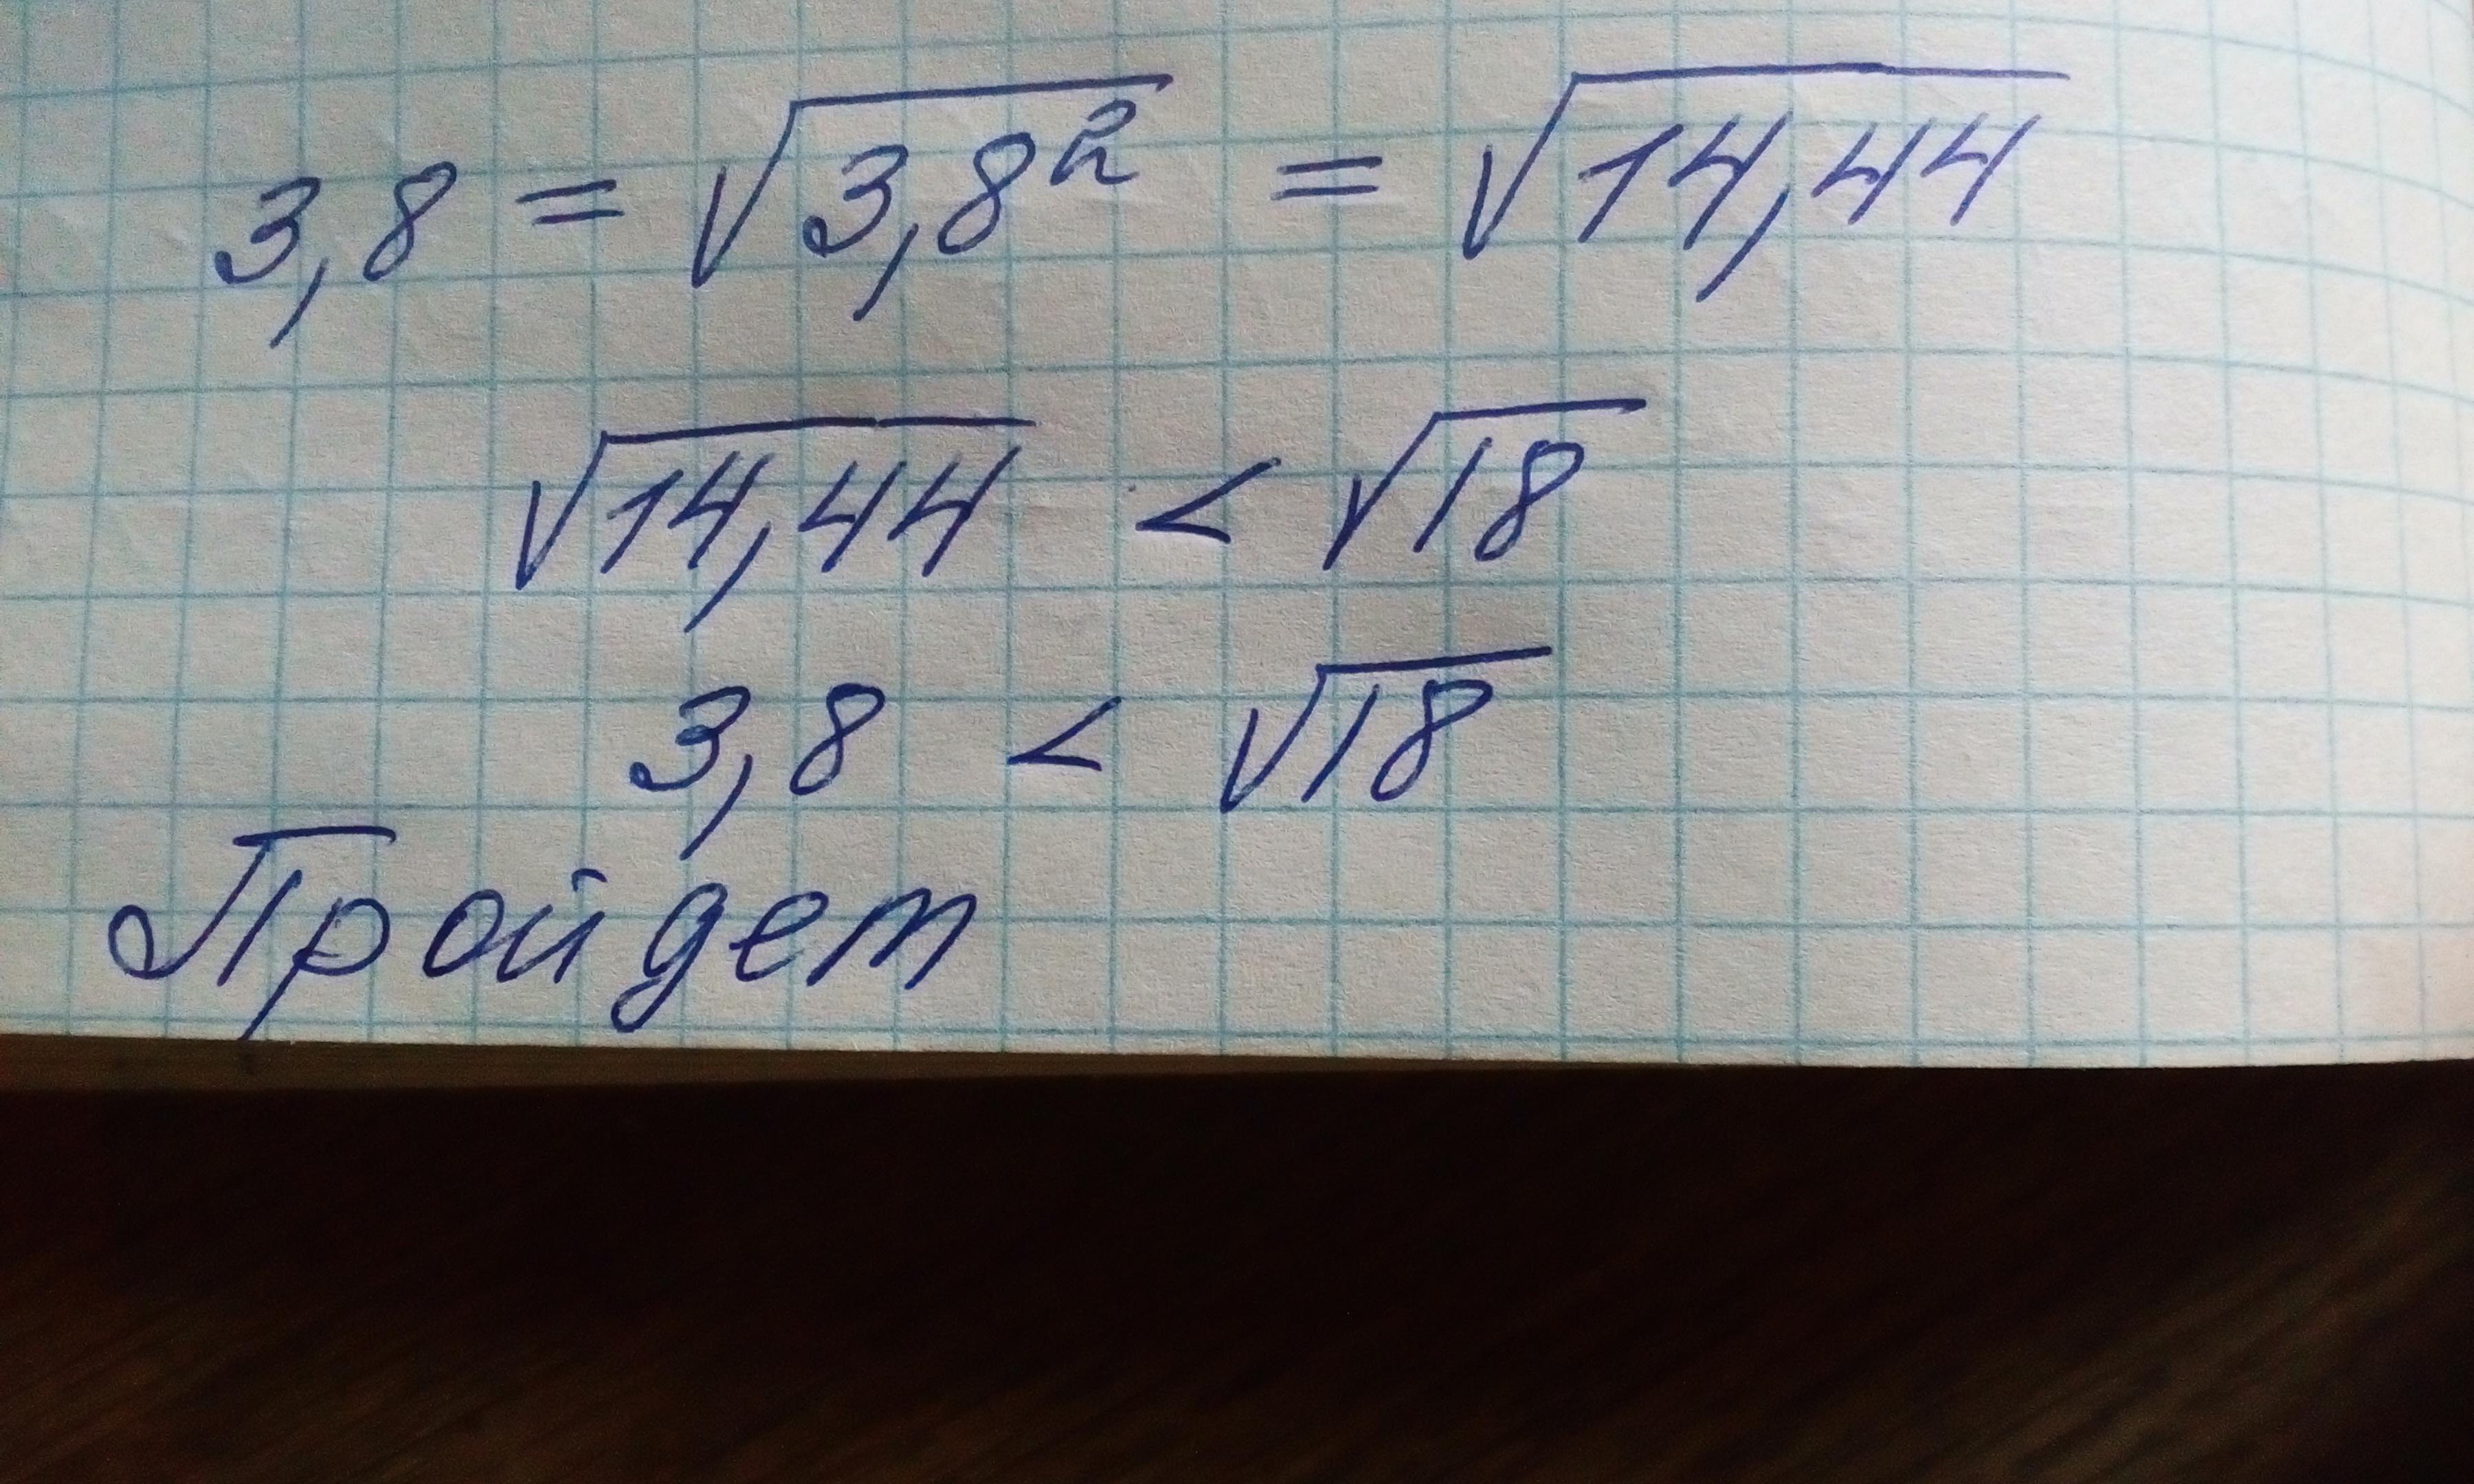 3,8 = √3,8² = √14,44
√14,44 < √18
3,8 < √18
Пройдет